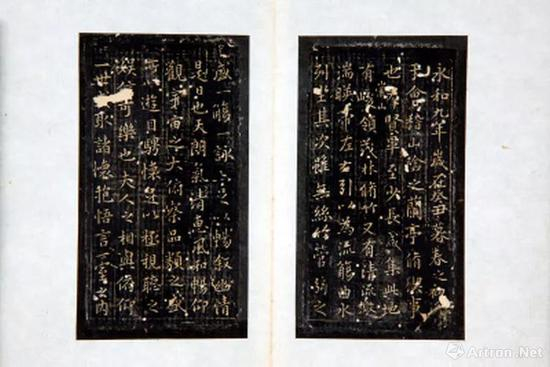 永和九年歲在癸丑暮春之初
于會稽山陰之蘭亭脩禊事
也群賢畢至少長咸集此地
崇山
有峻領茂林脩竹又有清流激
湍暎帶左右引以為流觴曲水
列坐其次雖無絲竹管弦之
盛一觴一詠亦足以暢敘幽情
是日也天朗氣清惠風和暢仰
觀宇宙之大俯察品類之盛
遊目騁懷足以極視聽之
娛信可樂也夫人之相與俯仰
一世取諸懷抱悟言一室之內
Artron.Net